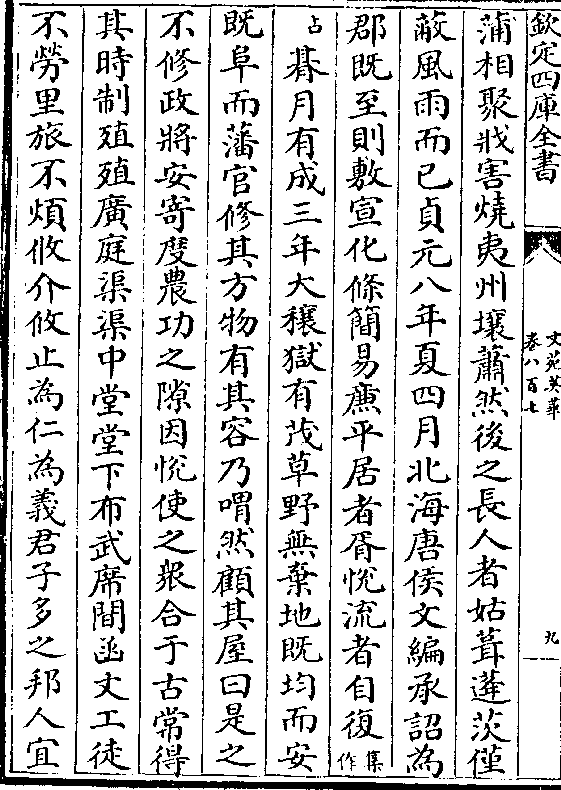 欽定四庫全書
文苑英華
卷八百七
九
蒲相聚戕害燒夷州壤蕭然後之長人者姑葺蓬茨僅
蔽風雨而已貞元八年夏四月北海唐侯文編承詔為
郡既至則敷宣化條簡易廉平居者胥悅流者自復集作
占朞月有成三年大穰獄有茂草野無棄地既均而安
既阜而蕃官修其方物有其容乃喟然顧其屋曰是之
不修政將安寄度農功之隙因悅使之衆合于古常得
其時制殖殖廣庭渠渠中堂堂下布武席間函丈工徒
不勞里旅不煩攸介攸止為仁為義君子多之邦人宜